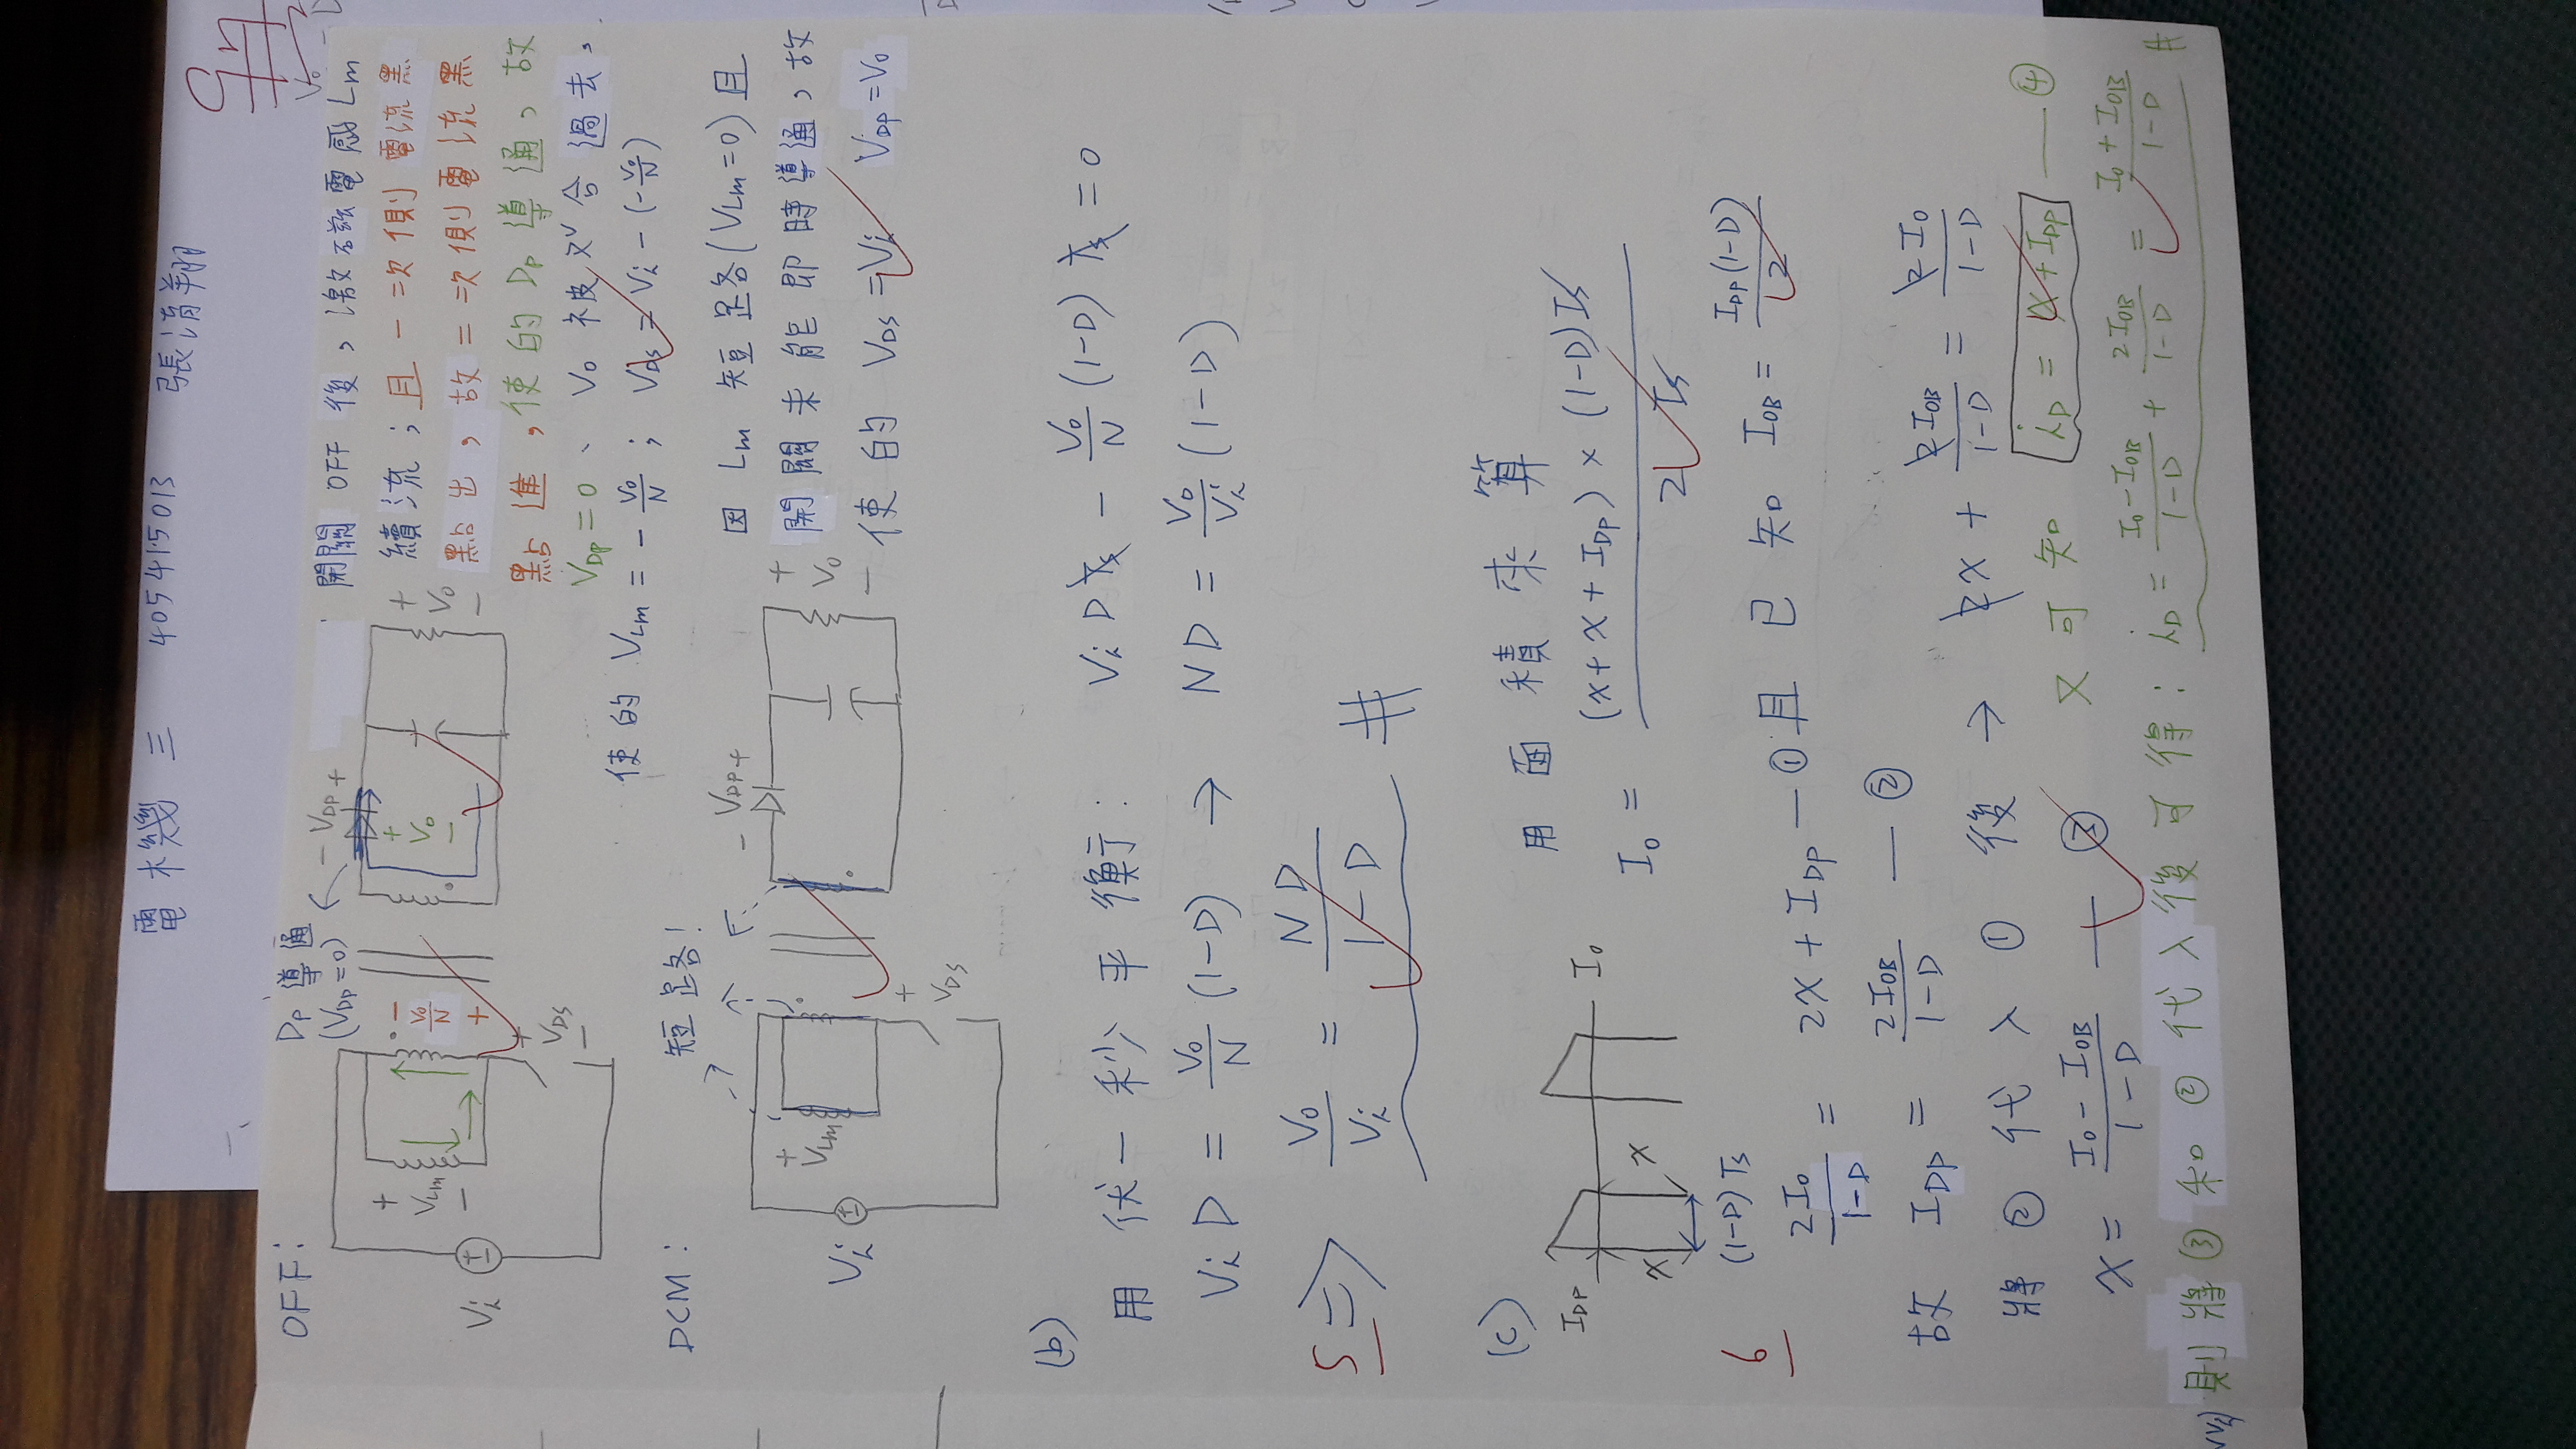 電機三 405415013 張清翔
97
一、
OFF:
Dp 導通
(VDp=0)
- VDp +
+
VLm
-
-
Vo/N
+
+
Vo
-
+
Vo
-
Vi
+
VDS
-
開關 OFF 後,激磁電感 Lm
續流;且一次側電流黑
點出,故二次側電流黑
點進,使的 Dp 導通,故
VDp=0、Vo 被双合過去,
使的 VLm = -Vo/N ; VDS = Vi - (-Vo/N)
DCM:
短路!
- VDP +
+
VLm
-
Vi
+
VDS
+
Vo
-
因 Lm 短路(VLm=0)且
開關未能即時導通,故
使的 VDS = Vi VDP = Vo
(b)
用伏-秒平衡: Vi D Ts - Vo/N (1-D) Ts = 0
Vi D = Vo/N (1-D) → ND = Vo/Vi (1-D)
5 ⇒ Vo/Vi = ND/(1-D) #
(c)
用面積來算
IDP
Io
x
x
(1-D) Ts
Io = (x+x+IDP) × (1-D)Ts / 2Ts
6
2Io/(1-D) = 2x + IDP — ① 且已知 IOB = IDP(1-D)/2
故 IDP = 2IOB/(1-D) — ②
將 ② 代入 ① 後 → 2x + 2IOB/(1-D) = 2Io/(1-D)
x = (Io - IOB)/(1-D) — ③
又可知 iD = x + IDP — ④
則將 ③ 和 ② 代入後可得: iD = (Io-IOB)/(1-D) + 2IOB/(1-D) = (Io+IOB)/(1-D) #